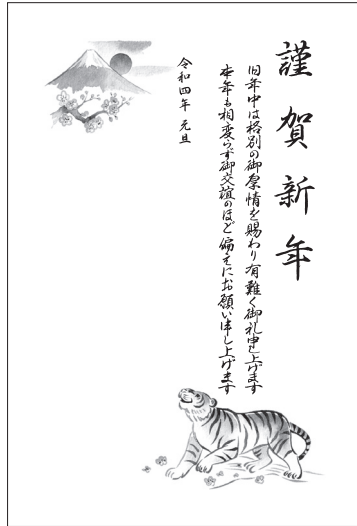 謹賀新年
旧年中は格別の御厚情を賜わり有難く御礼申し上げます
本年も相変らず御交誼のほど偏えにお願い申し上げます
令和四年 元旦